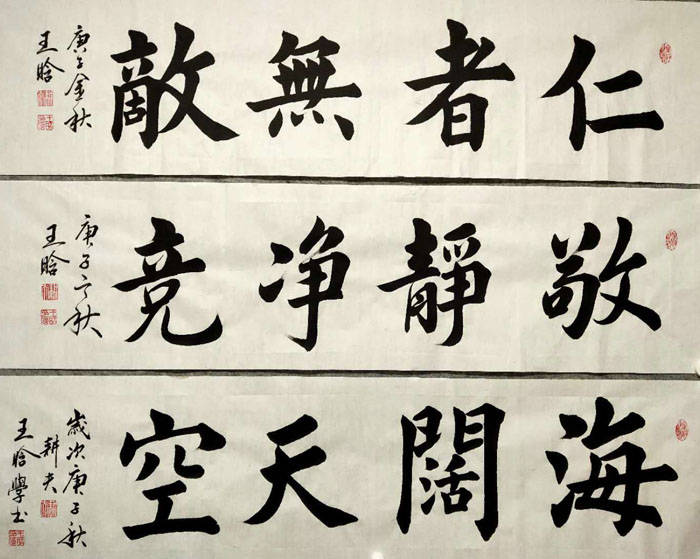 仁者無敵
庚子金秋
王晗
敬靜净竞
庚子之秋
王晗
海闊天空
歲次庚子秋
耕夫
王晗學书